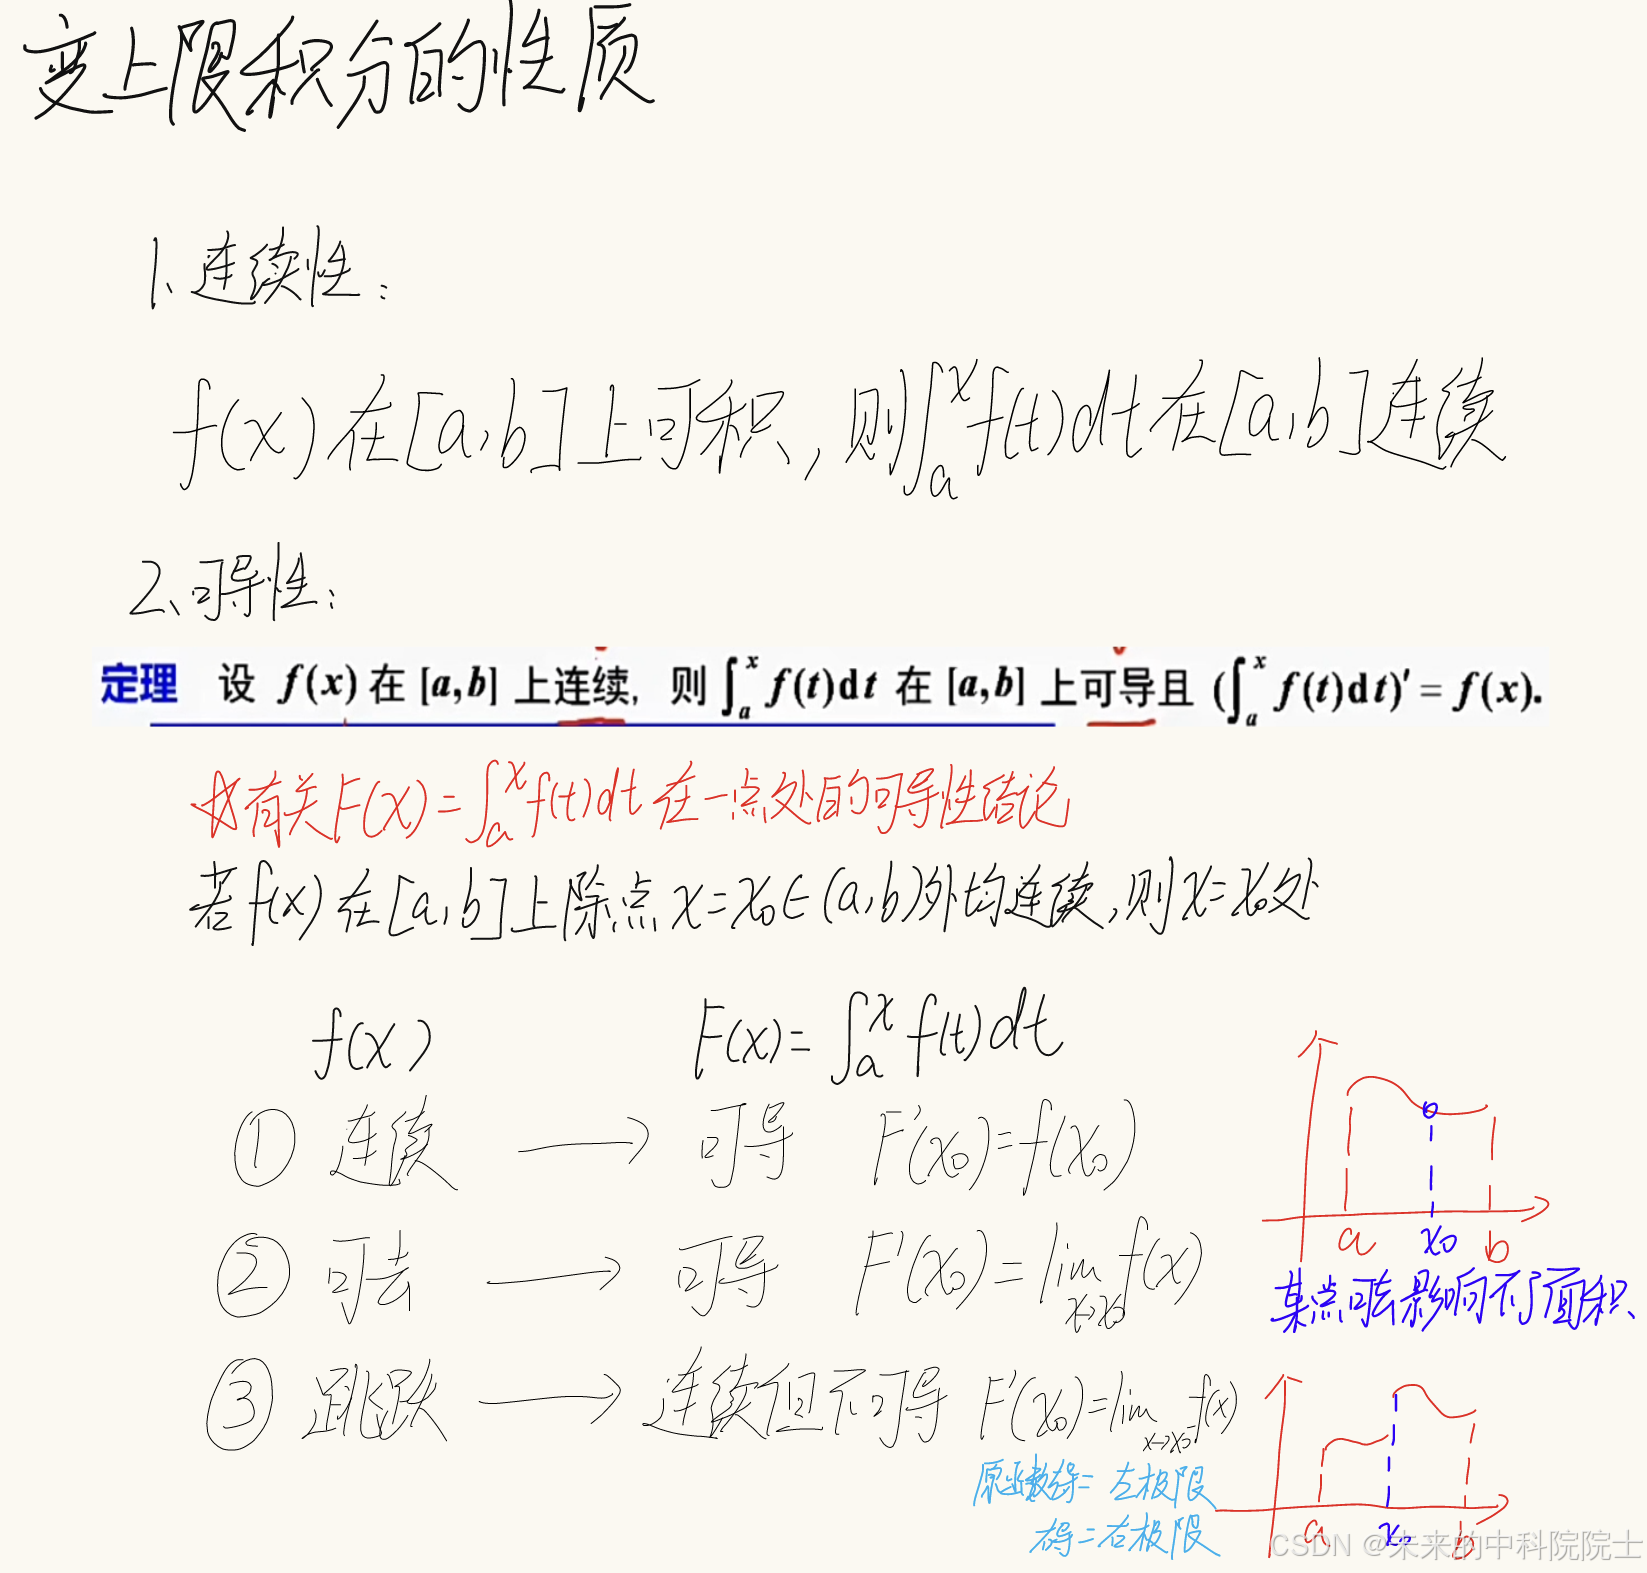 变上限积分的性质
1、连续性：
f(x)在[a,b]上可积，则∫ₐˣf(t)dt在[a,b]连续
2、可导性：
定理 设 f(x) 在 [a,b] 上连续，则 ∫ₐˣ f(t)dt 在 [a,b] 上可导且 (∫ₐˣ f(t)dt)′ = f(x).
☆有关F(x)=∫ₐˣf(t)dt在一点处的可导性结论
若f(x)在[a,b]上除点x=x₀∈(a,b)外均连续，则x=x₀处
f(x) F(x)=∫ₐˣf(t)dt
① 连续 → 可导 F′(x₀)=f(x₀)
② 可去 → 可导 F′(x₀)=lim x→x₀ f(x)
③ 跳跃 → 连续但不可导 F′(x₀)=lim x→x₀⁻ f(x)
原函数左导=左极限
右导=右极限
a x₀ b
某点可去影响不了面积、
a x₀ b
CSDN @未来的中科院院士